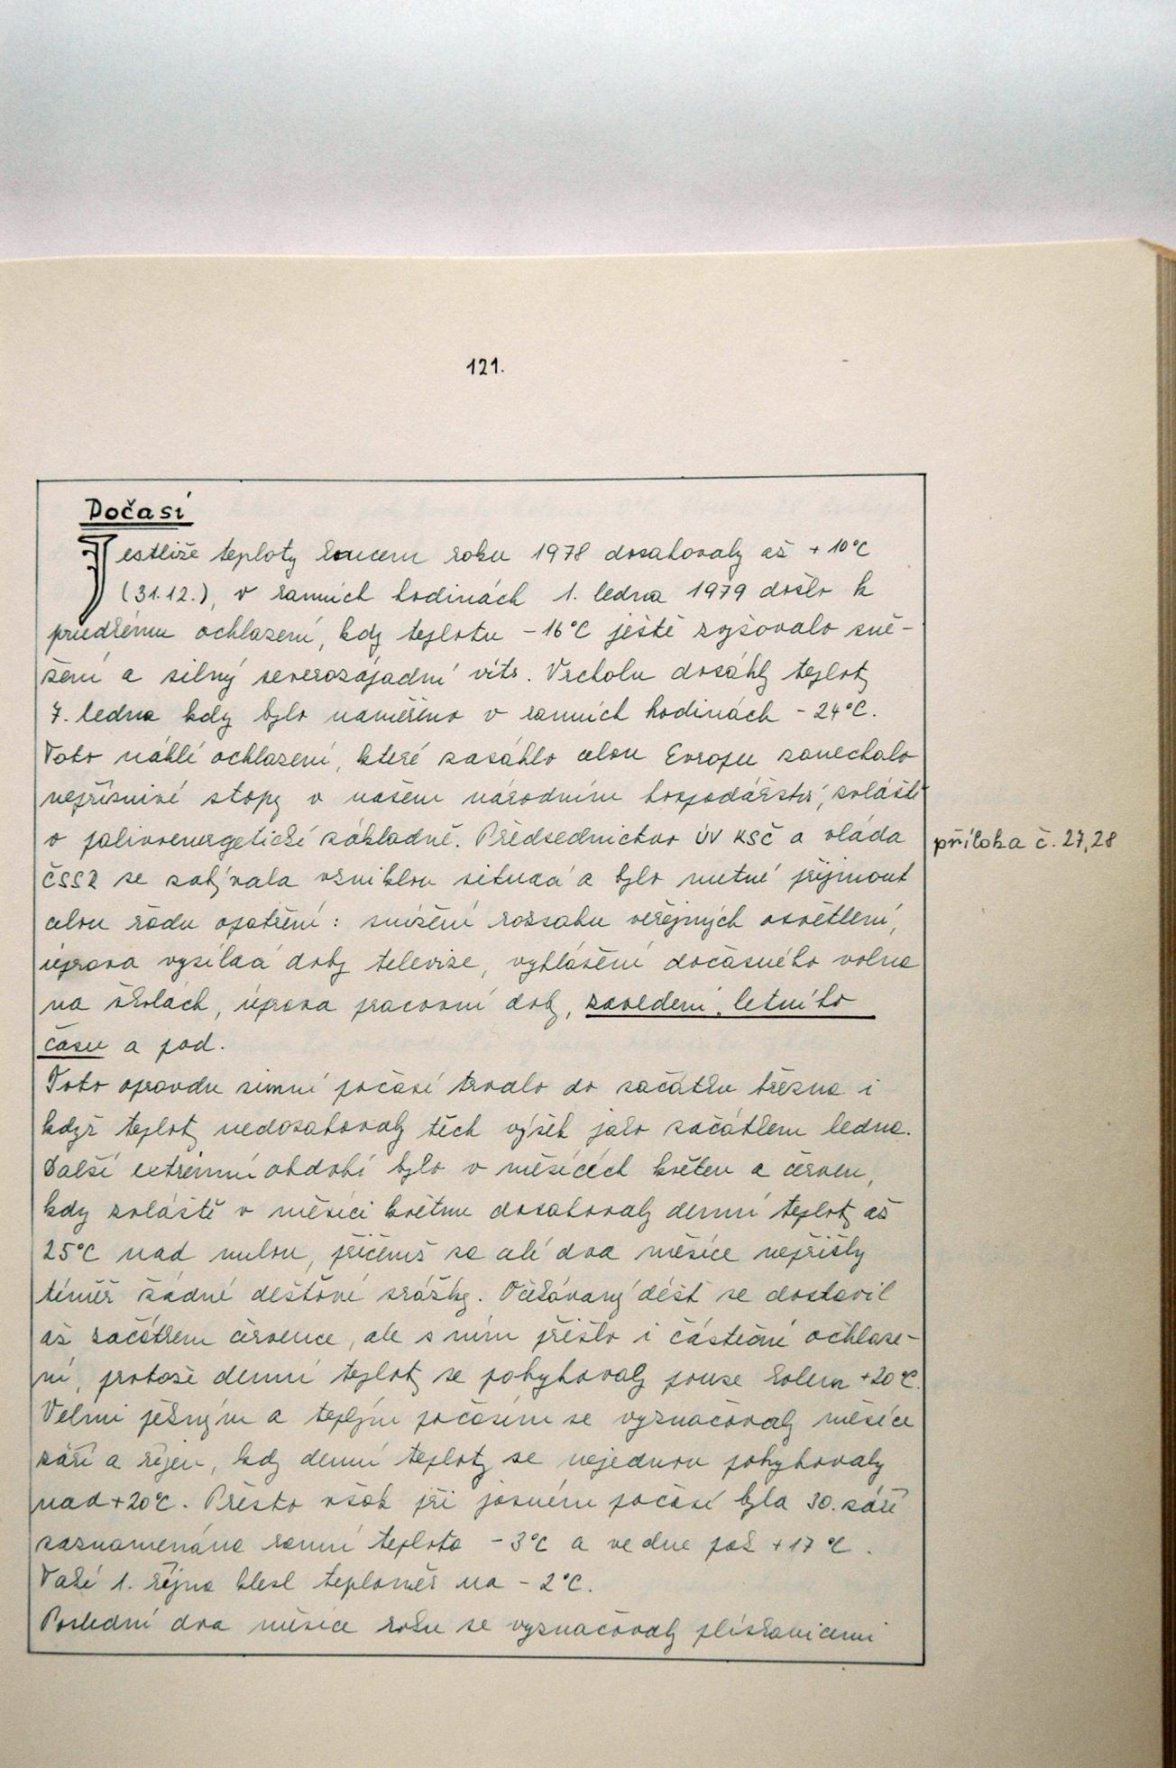 121.
Počasí
Jestliže teploty koncem roku 1978 dosahovaly až +10°C
(31.12.), v ranních hodinách 1. ledna 1979 došlo k
prudkému ochlazení, kdy teplotu -16°C ještě zvyšovalo sně-
žení a silný severozápadní vítr. Vrcholu dosáhly teploty
7. ledna kdy bylo naměřeno v ranních hodinách -24°C.
Toto náhlé ochlazení, které zasáhlo celou Evropu zanechalo
nepříznivé stopy v našem národním hospodářství, zvláště
v palivoenergetické základně. Předsednictvo ÚV KSČ a vláda
příloha č. 27,28
ČSSR se zabývala vzniklou situací a bylo nutné přijmout
celou řadu opatření: snížení rozsahu veřejných osvětlení,
úprava vysílací doby televize, vyhlášení dočasného volna
na školách, úprava pracovní doby, zavedení letního
času a pod.
Toto opravdu zimní počasí trvalo do začátku března i
když teploty nedosahovaly těch výšek jako začátkem ledna.
Další extrémní období bylo v měsících květen a červen,
kdy zvláště v měsíci květnu dosahovaly denní teploty až
25°C nad nulou, přičemž za celé dva měsíce nepřišly
téměř žádné dešťové srážky. Očekávaný déšť se dostavil
až začátkem července, ale s ním přišlo i částečné ochlaze-
ní, protože denní teploty se pohybovaly pouze kolem +20°C.
Velmi pěkným a teplým počasím se vyznačovaly měsíce
září a říjen, kdy denní teploty se nejednou pohybovaly
nad +20°C. Přesto však při jasném počasí byla 30. září
zaznamenána ranní teplota -3°C a ve dne pak +17°C.
Také 1. října klesl teploměr na -2°C.
Poslední dva měsíce roku se vyznačovaly plískanicemi